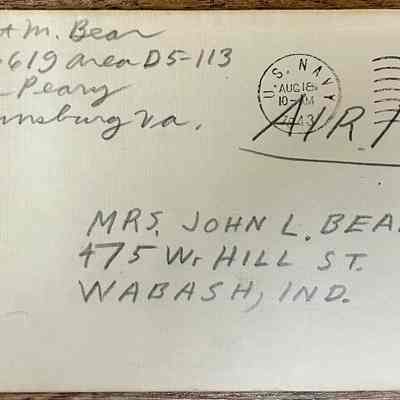 t M. Bear
619 area D5-113
Peary
msburg Va.
U.S. NAVY
AUG 18
10-AM
1943
AIR
MRS. JOHN L. BEA
475 W. HILL ST.
WABASH, IND.